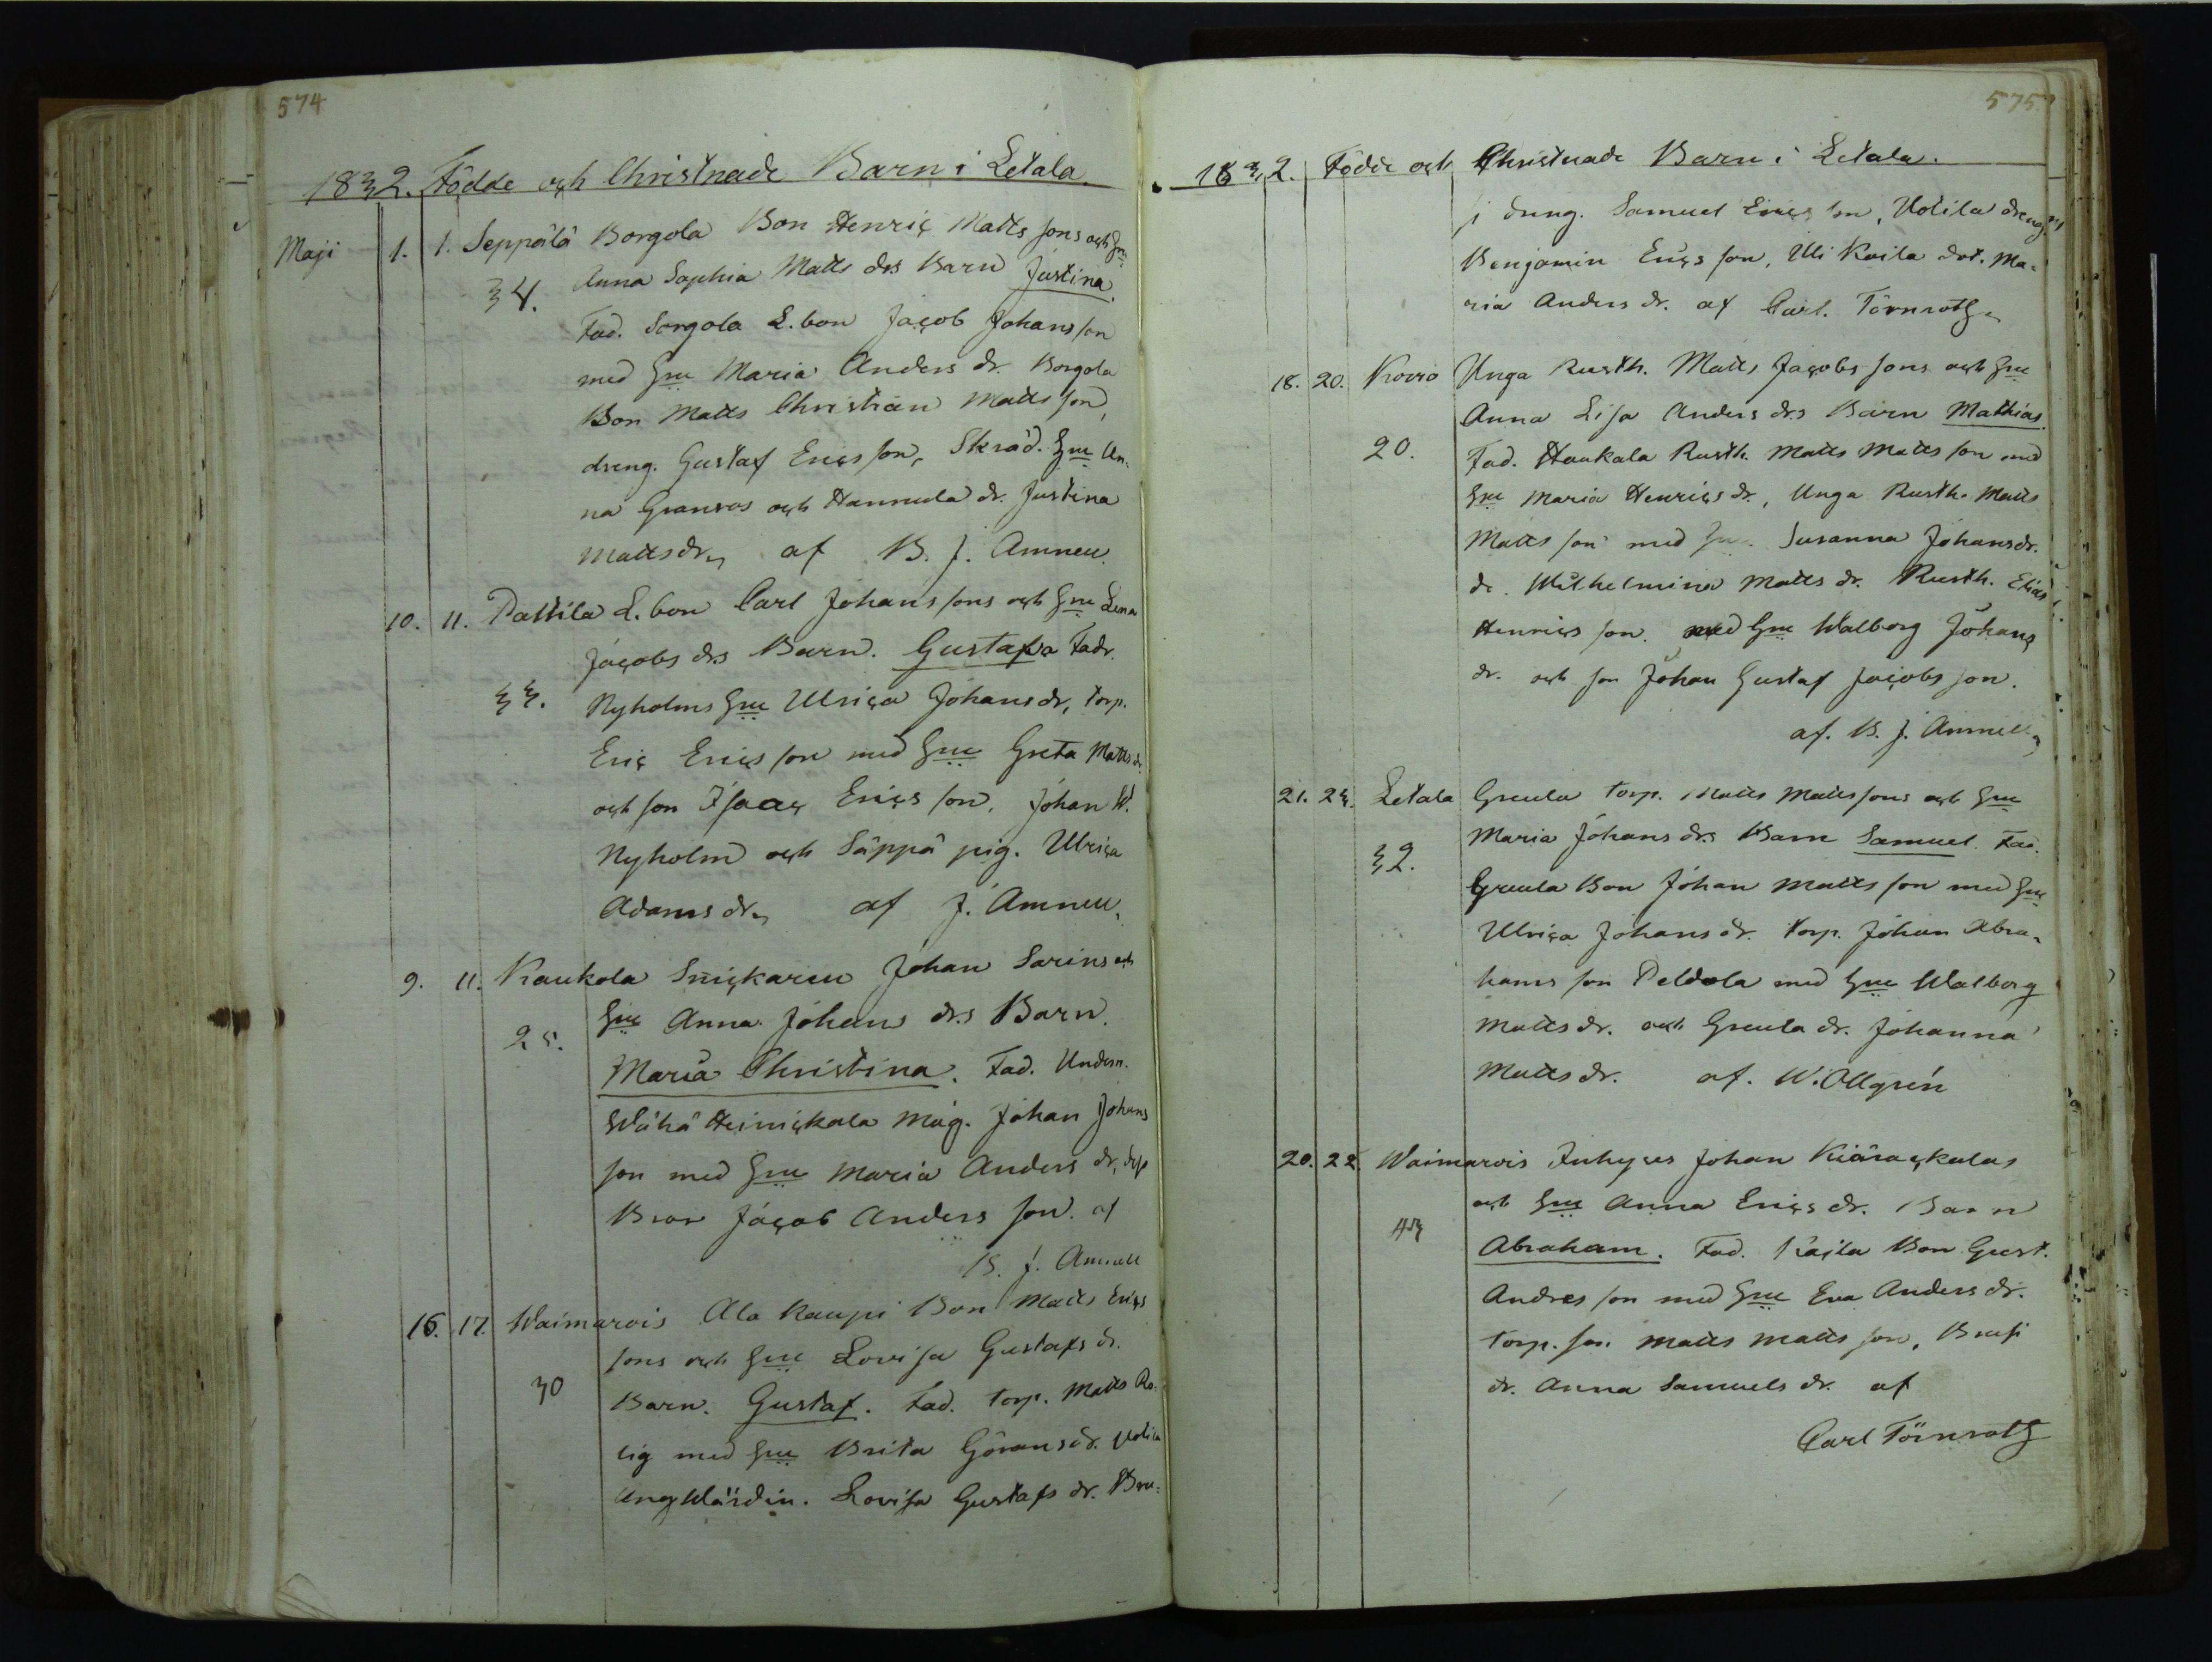 574
1832. Födde och Christnade Barn i Letala.
Maji 1. 1. Seppälä Borgola Bon Henric Matts sons och Hu
34. Anna Sophia Matts drs Barn Justina.
Fad. Sorgola L. bon Jacob Johans son
med Hu Maria Anders dr. Borgola
Bon Matts Christian Matts son,
dreng. Gustaf Erics son, Skräd. Hu An-
na Granroos och Hannula dr. Justina
Matts dr, af B. J. Amnell.
10. 11. Pattila L. bon Carl Johans sons och Hu Lena
Jacobs drs Barn. Gustafva Fadr.
33. Nyholms Hu Ulrica Johans dr, torp.
Eric Erics son med Hu Greta Matts dr.
och son Isaac Erics son, Johan W.
Nyholm och Säppä pig. Ulrica
Adams dr, af J. Amnell.
9. 11. Kaukola Snickaren Johan Sarins och
25. Hu Anna Johans drs Barn.
Maria Christina. Fad. Undern.
Wähä Heinickala Måg. Johan Johans
son med Hu Maria Anders dr, dess
Bror Jacob Anders son. af
B. J. Amnell
16. 17. Waimarois Ala Kaupi Bon Matts Erics
sons och Hu Lovisa Gustafs dr.
30 Barn. Gustaf. Fad. torp. Matts Ro-
lig med Hu Brita Görans dr. Uotila
Ung Wärdin. Lovisa Gustafs dr. Bru-
575
1832. Födde och Christnade Barn i Letala.
si dreng. Samuel Erics son, Uotila dreng
Benjamin Erics son, Uli Kaila dot. Ma-
ria Anders dr. af Carl. Törnroth
18. 20. Kovio Unga Rusth. Matts Jacobs sons och Hu
Anna Lisa Anders drs Barn Mathias.
20. Fad. Haukala Rusth. Matts Matts son med
Hu Maria Henrics dr., Unga Rusth. Matts
Matts son med Hu. Susanna Johans dr.
dr. Wilhelmina Matts dr. Rusth. Elias
Henrics son. med Hu Walborg Johans
dr. och son Johan Gustaf Jacobs son.
af. B. J. Amnell
21. 23. Letala Greula torp. Matts Matts sons och Hu
32. Maria Johans drs Barn Samuel. Fad.
Greula Bon Johan Matts son med Hu
Ulrica Johans dr. torp. Johan Abra-
hams son Peldola med Hu Walborg
Matts dr. och Greula dr. Johanna
Matts dr. af. W. Ollgrén
20. 22. Waimarois Inhyses Johan Kiärackalas
43 och Hu Anna Erics dr. Barn
Abraham. Fad. Kajla Bon Gust.
Andres son med Hu Eva Anders dr.
torp. son Matts Matts son, Brusi
dr. Anna Samuels dr. af
Carl Törnroth